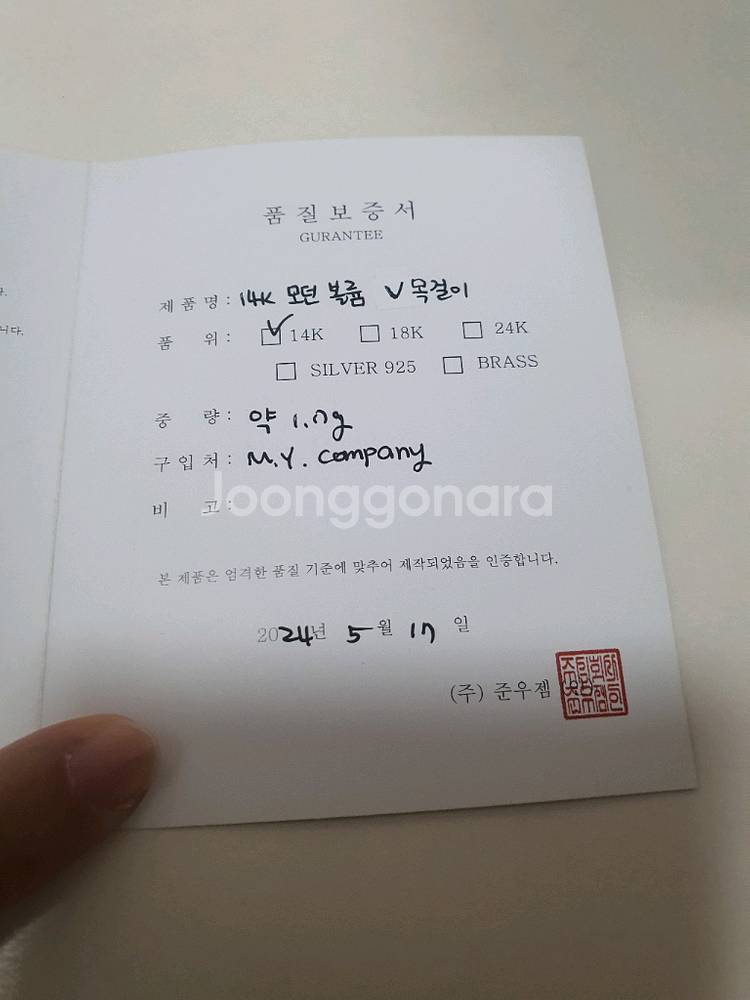 품질보증서
GURANTEE
제품명 : 14K 모던 볼륨 V 목걸이
품 위 : 14K 18K 24K
SILVER 925 BRASS
중 량 : 약 1.7g
구입처 : M.Y. company
비 고 :
Joonggonara
본 제품은 엄격한 품질 기준에 맞추어 제작되었음을 인증합니다.
2024년 5월 17일
(주) 준우젬
니다.